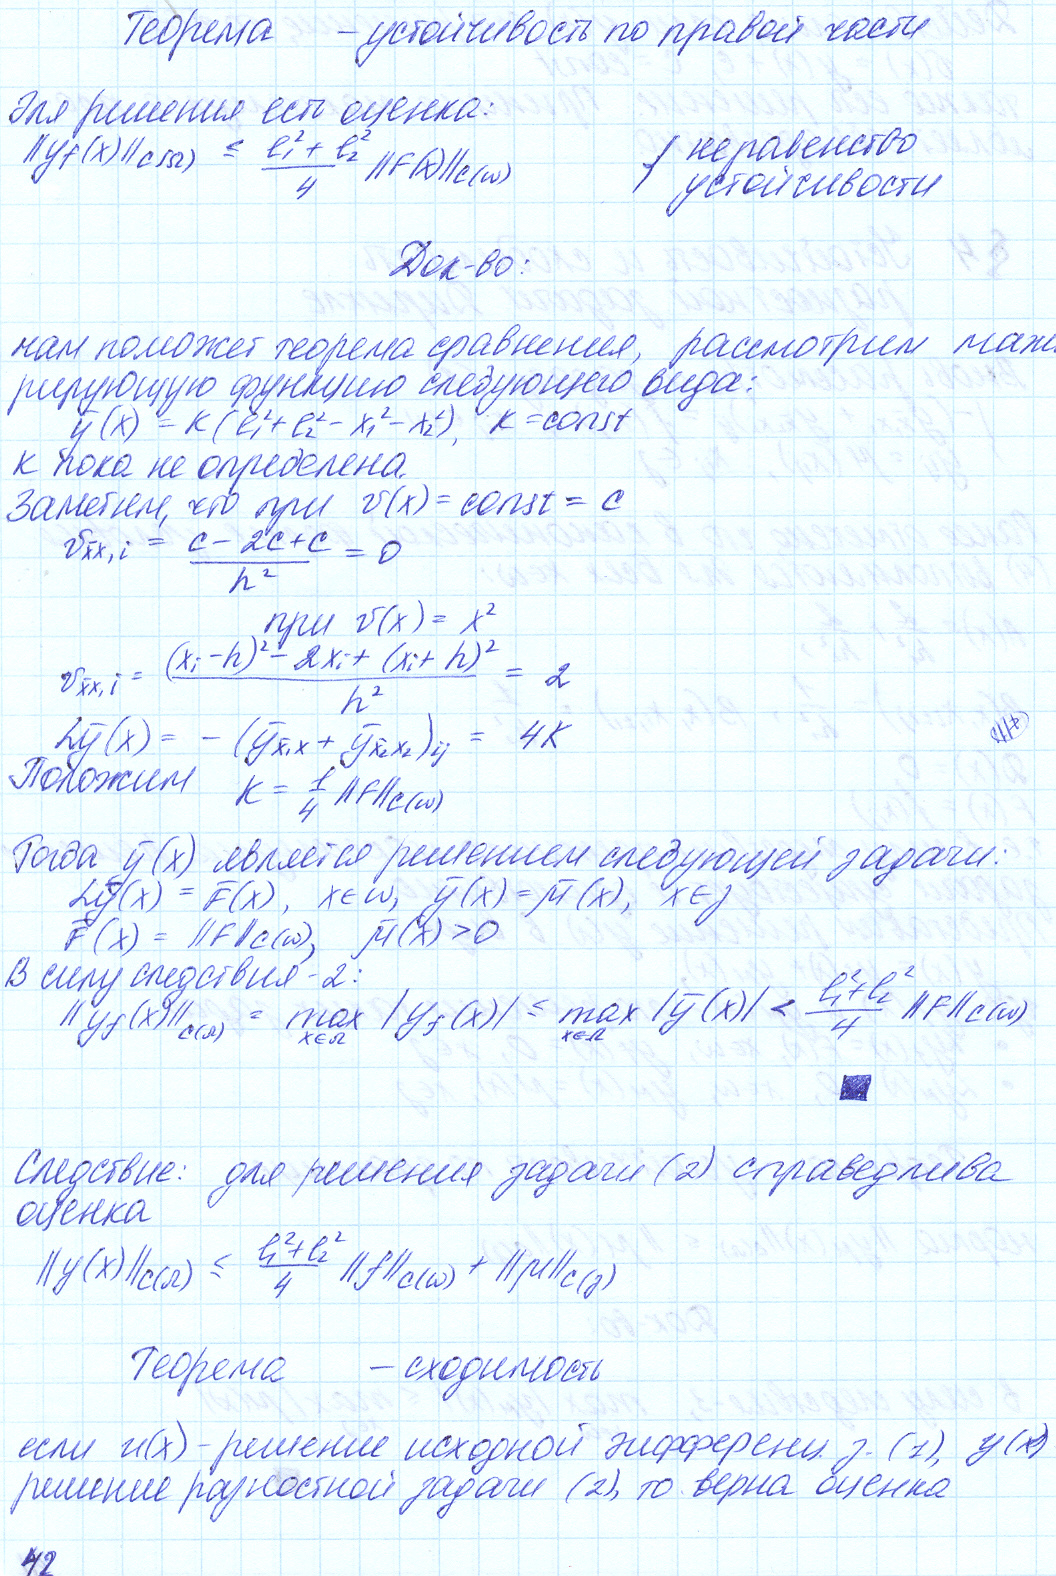 Теорема – устойчивость по правой части
Для решения есть оценка:
||y_f(x)||_{C(Ω)} ≤ (l₁² + l₂²)/4 ||F(x)||_{C(ω)} } неравенство
устойчивости
Док-во:
нам поможет теорема сравнения, рассмотрим мажо
рирующую функцию следующего вида:
ȳ(x) = K(l₁² + l₂² – x₁² – x₂²), K = const
K пока не определена.
Заметим, что при v(x) = const = c
v_{x̄x,i} = (c – 2c + c)/h² = 0
при v(x) = x²
v_{x̄x,i} = ((xᵢ – h)² – 2xᵢ + (xᵢ + h)²)/h² = 2
Lȳ(x) = – (ȳ_{x̄₁x} + ȳ_{x̄₂x₂})_{ij} = 4K
Положим K = 1/4 ||F||_{C(ω)}
Тогда ȳ(x) является решением следующей задачи:
Lȳ(x) = F̄(x), x∈ω, ȳ(x) = μ̄(x), x∈γ
F̄(x) = ||F||_{C(ω)}, μ̄(x) > 0
В силу следствия-2:
||y_f(x)||_{C(Ω)} = max_{x∈Ω} |y_f(x)| ≤ max_{x∈Ω} |ȳ(x)| < (l₁² + l₂²)/4 ||F||_{C(ω)}
Следствие: для решения задачи (2) справедлива
оценка
||y(x)||_{C(Ω)} ≤ (l₁² + l₂²)/4 ||f||_{C(ω)} + ||μ||_{C(γ)}
Теорема – сходимость
если u(x) – решение исходной дифференц. з. (1), y(x)
решение разностной задачи (2), то верна оценка
42